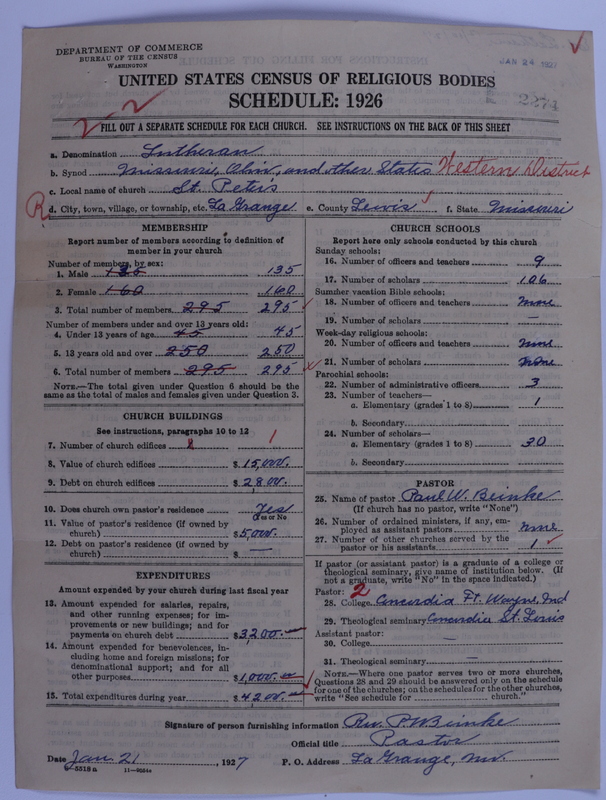 DEPARTMENT OF COMMERCE
BUREAU OF THE CENSUS
WASHINGTON
JAN 24 1927
UNITED STATES CENSUS OF RELIGIOUS BODIES
SCHEDULE: 1926
2274
FILL OUT A SEPARATE SCHEDULE FOR EACH CHURCH. SEE INSTRUCTIONS ON THE BACK OF THIS SHEET
a. Denomination Lutheran
b. Synod Missouri, Ohio, and other States Western District
c. Local name of church St. Peter's
R d. City, town, village, or township, etc. La Grange e. County Lewis f. State Missouri
MEMBERSHIP
Report number of members according to definition of
member in your church
Number of members, by sex:
1. Male 135 135
2. Female 160 160
3. Total number of members 295 295
Number of members under and over 13 years old:
4. Under 13 years of age 45 45
5. 13 years old and over 250 250
6. Total number of members 295 295
NOTE.—The total given under Question 6 should be the
same as the total of males and females given under Question 3.
CHURCH BUILDINGS
See instructions, paragraphs 10 to 12
7. Number of church edifices 1
8. Value of church edifices $15,000.
9. Debt on church edifices $2800.
10. Does church own pastor's residence Yes
(Yes or No)
11. Value of pastor's residence (if owned by
church) $5,000.
12. Debt on pastor's residence (if owned by
church) $ —
EXPENDITURES
Amount expended by your church during last fiscal year
13. Amount expended for salaries, repairs,
and other running expenses; for im-
provements or new buildings; and for
payments on church debt $3200.
14. Amount expended for benevolences, in-
cluding home and foreign missions; for
denominational support; and for all
other purposes $1,000.
15. Total expenditures during year $4200.
CHURCH SCHOOLS
Report here only schools conducted by this church
Sunday schools:
16. Number of officers and teachers 9
17. Number of scholars 106
Summer vacation Bible schools:
18. Number of officers and teachers none
19. Number of scholars —
Week-day religious schools:
20. Number of officers and teachers none
21. Number of scholars none
Parochial schools:
22. Number of administrative officers 3
23. Number of teachers—
a. Elementary (grades 1 to 8) 1
b. Secondary
24. Number of scholars—
a. Elementary (grades 1 to 8) 30
b. Secondary
PASTOR
25. Name of pastor Paul W. Beinke
(If church has no pastor, write "None")
26. Number of ordained ministers, if any, em-
ployed as assistant pastors none
27. Number of other churches served by the
pastor or his assistants 1
If pastor (or assistant pastor) is a graduate of a college or
theological seminary, give name of institution below. (If
not a graduate, write "No" in the space indicated.)
Pastor: 2
28. College Concordia Ft. Wayne, Ind
29. Theological seminary Concordia St. Louis
Assistant pastor:
30. College —
31. Theological seminary —
NOTE.—Where one pastor serves two or more churches,
Questions 28 and 29 should be answered only on the schedule
for one of the churches; on the schedules for the other churches,
write "See schedule for church."
Signature of person furnishing information Rev. P. W. Beinke
Official title Pastor
Date Jan. 21, 1927 P. O. Address La Grange, Mo.
8-5518a 11-9984